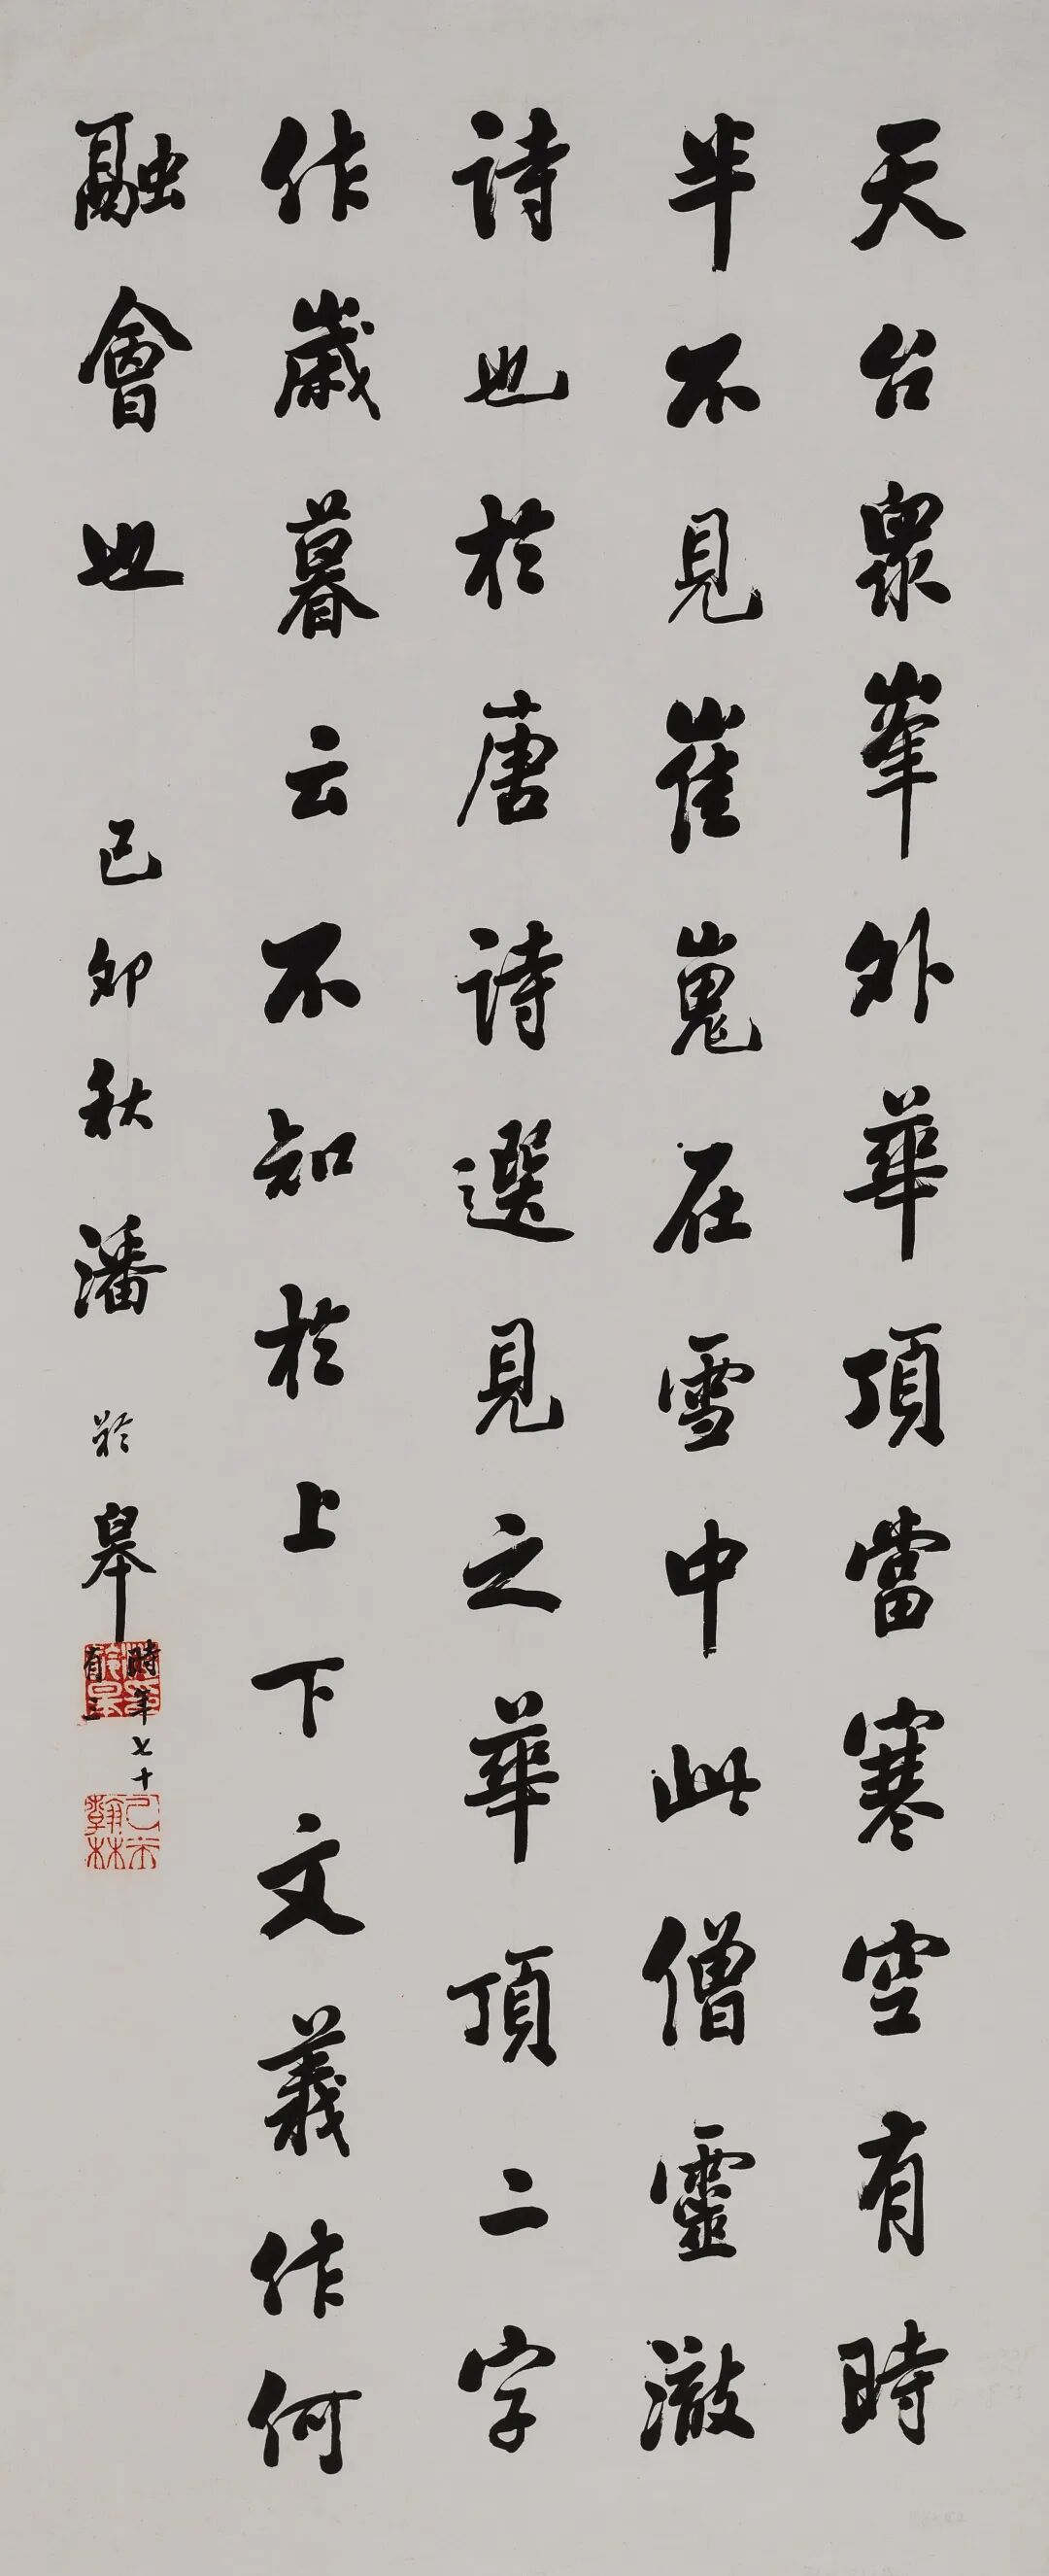 天台眾峯外華頂當寒空有時
半不見崔嵬在雪中此僧靈澈
詩也於唐詩選見之華頂二字
作歲暮云不知於上下文義作何
融會也
己卯秋潘齡皋
時年七十
有三